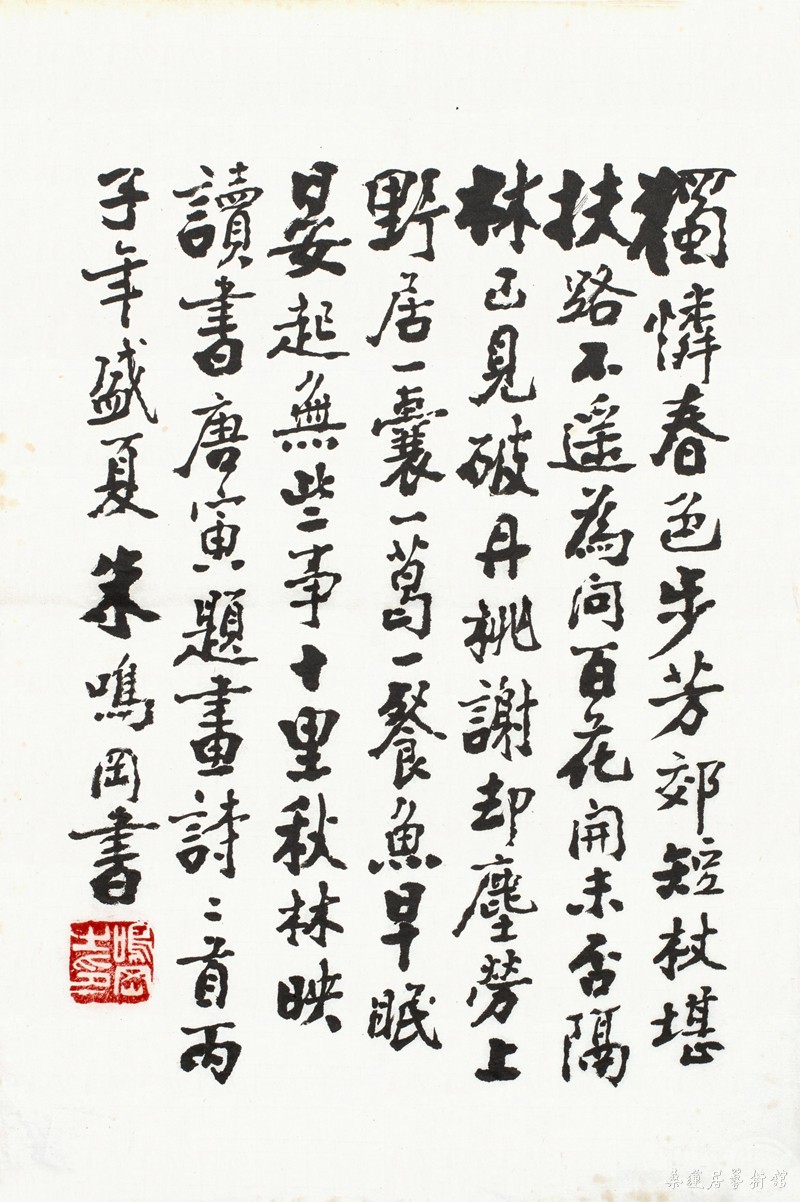 獨憐春色步芳郊短杖堪
扶路不遥為問百花開未否隔
林已見破丹桃謝却塵勞上
野居一囊一葛一餐魚早眠
晏起無些事十里秋林映
讀書唐寅題畫詩二首丙
子年盛夏朱鳴岡書
鳴岡
居藝術館